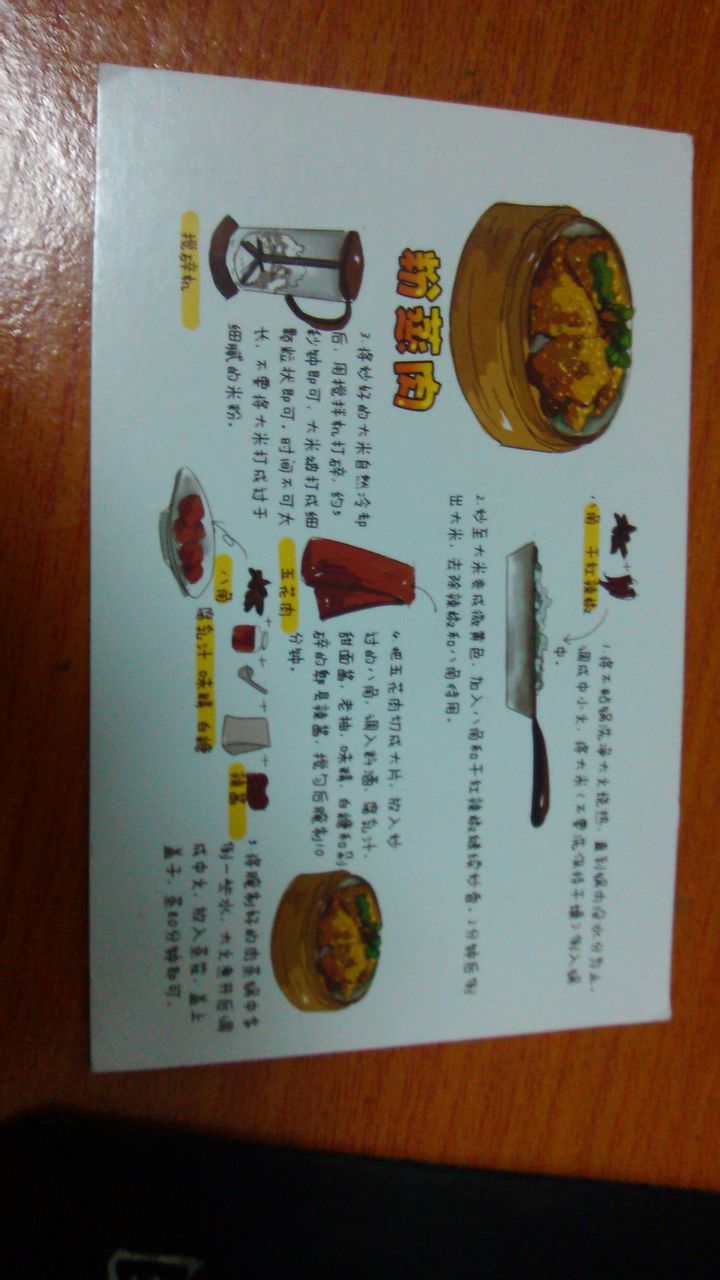 粉蒸肉
八角 干红辣椒
1.将不粘锅洗净大火烧热,直到锅内没水分为止,
调成中小火,将大米(不要洗保持干燥)倒入锅
中.
2.炒至大米变成微黄色,加入八角和干红辣椒继续炒香,2分钟后倒
出大米,去除辣椒和八角待用.
搅碎机
3.将炒好的大米自然冷却
后,用搅拌机打碎,约5
秒钟即可,大米被打成细
颗粒状即可,时间不可太
长,不要将大米打成过于
细腻的米粉.
五花肉
4.把五花肉切成大片,放入炒
过的八角,调入料酒,腐乳汁,
甜面酱,老抽,味精,白糖和剁
碎的郫县辣酱,搅匀后腌制10
分钟.
八角
腐乳汁 味精 白糖
辣酱
5.将腌制好的肉蒸锅中多
倒一些水,大火煮开后调
成中火,放入蒸笼,盖上
盖子,蒸80分钟即可.